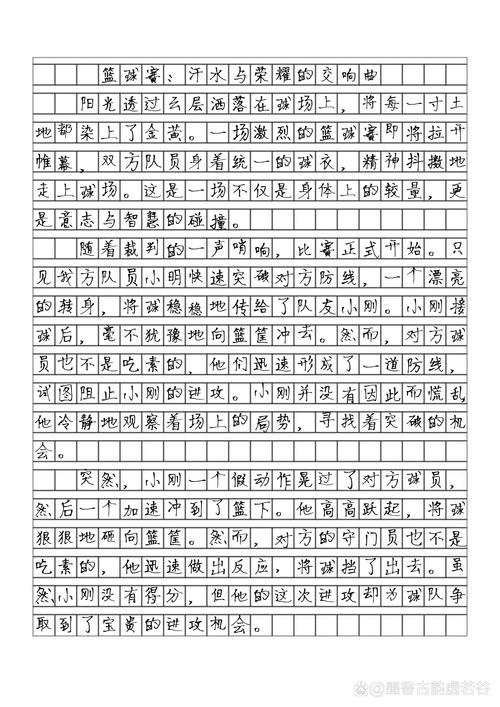 篮球赛：汗水与荣耀的交响曲
阳光透过云层洒落在球场上，将每一寸土
地都染上了金黄。一场激烈的篮球赛即将拉开
帷幕，双方队员身着统一的球衣，精神抖擞地
走上球场。这是一场不仅是身体上的较量，更
是意志与智慧的碰撞。
随着裁判的一声哨响，比赛正式开始。只
见我方队员小明快速突破对方防线，一个漂亮
的转身，将球稳稳地传给了队友小刚。小刚接
球后，毫不犹豫地向篮筐冲去。然而，对方球
员也不是吃素的，他们迅速形成了一道防线，
试图阻止小刚的进攻。小刚并没有因此而慌乱
他冷静地观察着场上的局势，寻找着突破的机
会。
突然，小刚一个假动作晃过了对方球员，
然后一个加速冲到了篮下。他高高跃起，将球
狠狠地砸向篮筐。然而，对方的守门员也不是
吃素的，他迅速做出反应，将球挡了出去。虽
然小刚没有得分，但他的这次进攻却为球队争
取到了宝贵的进攻机会。